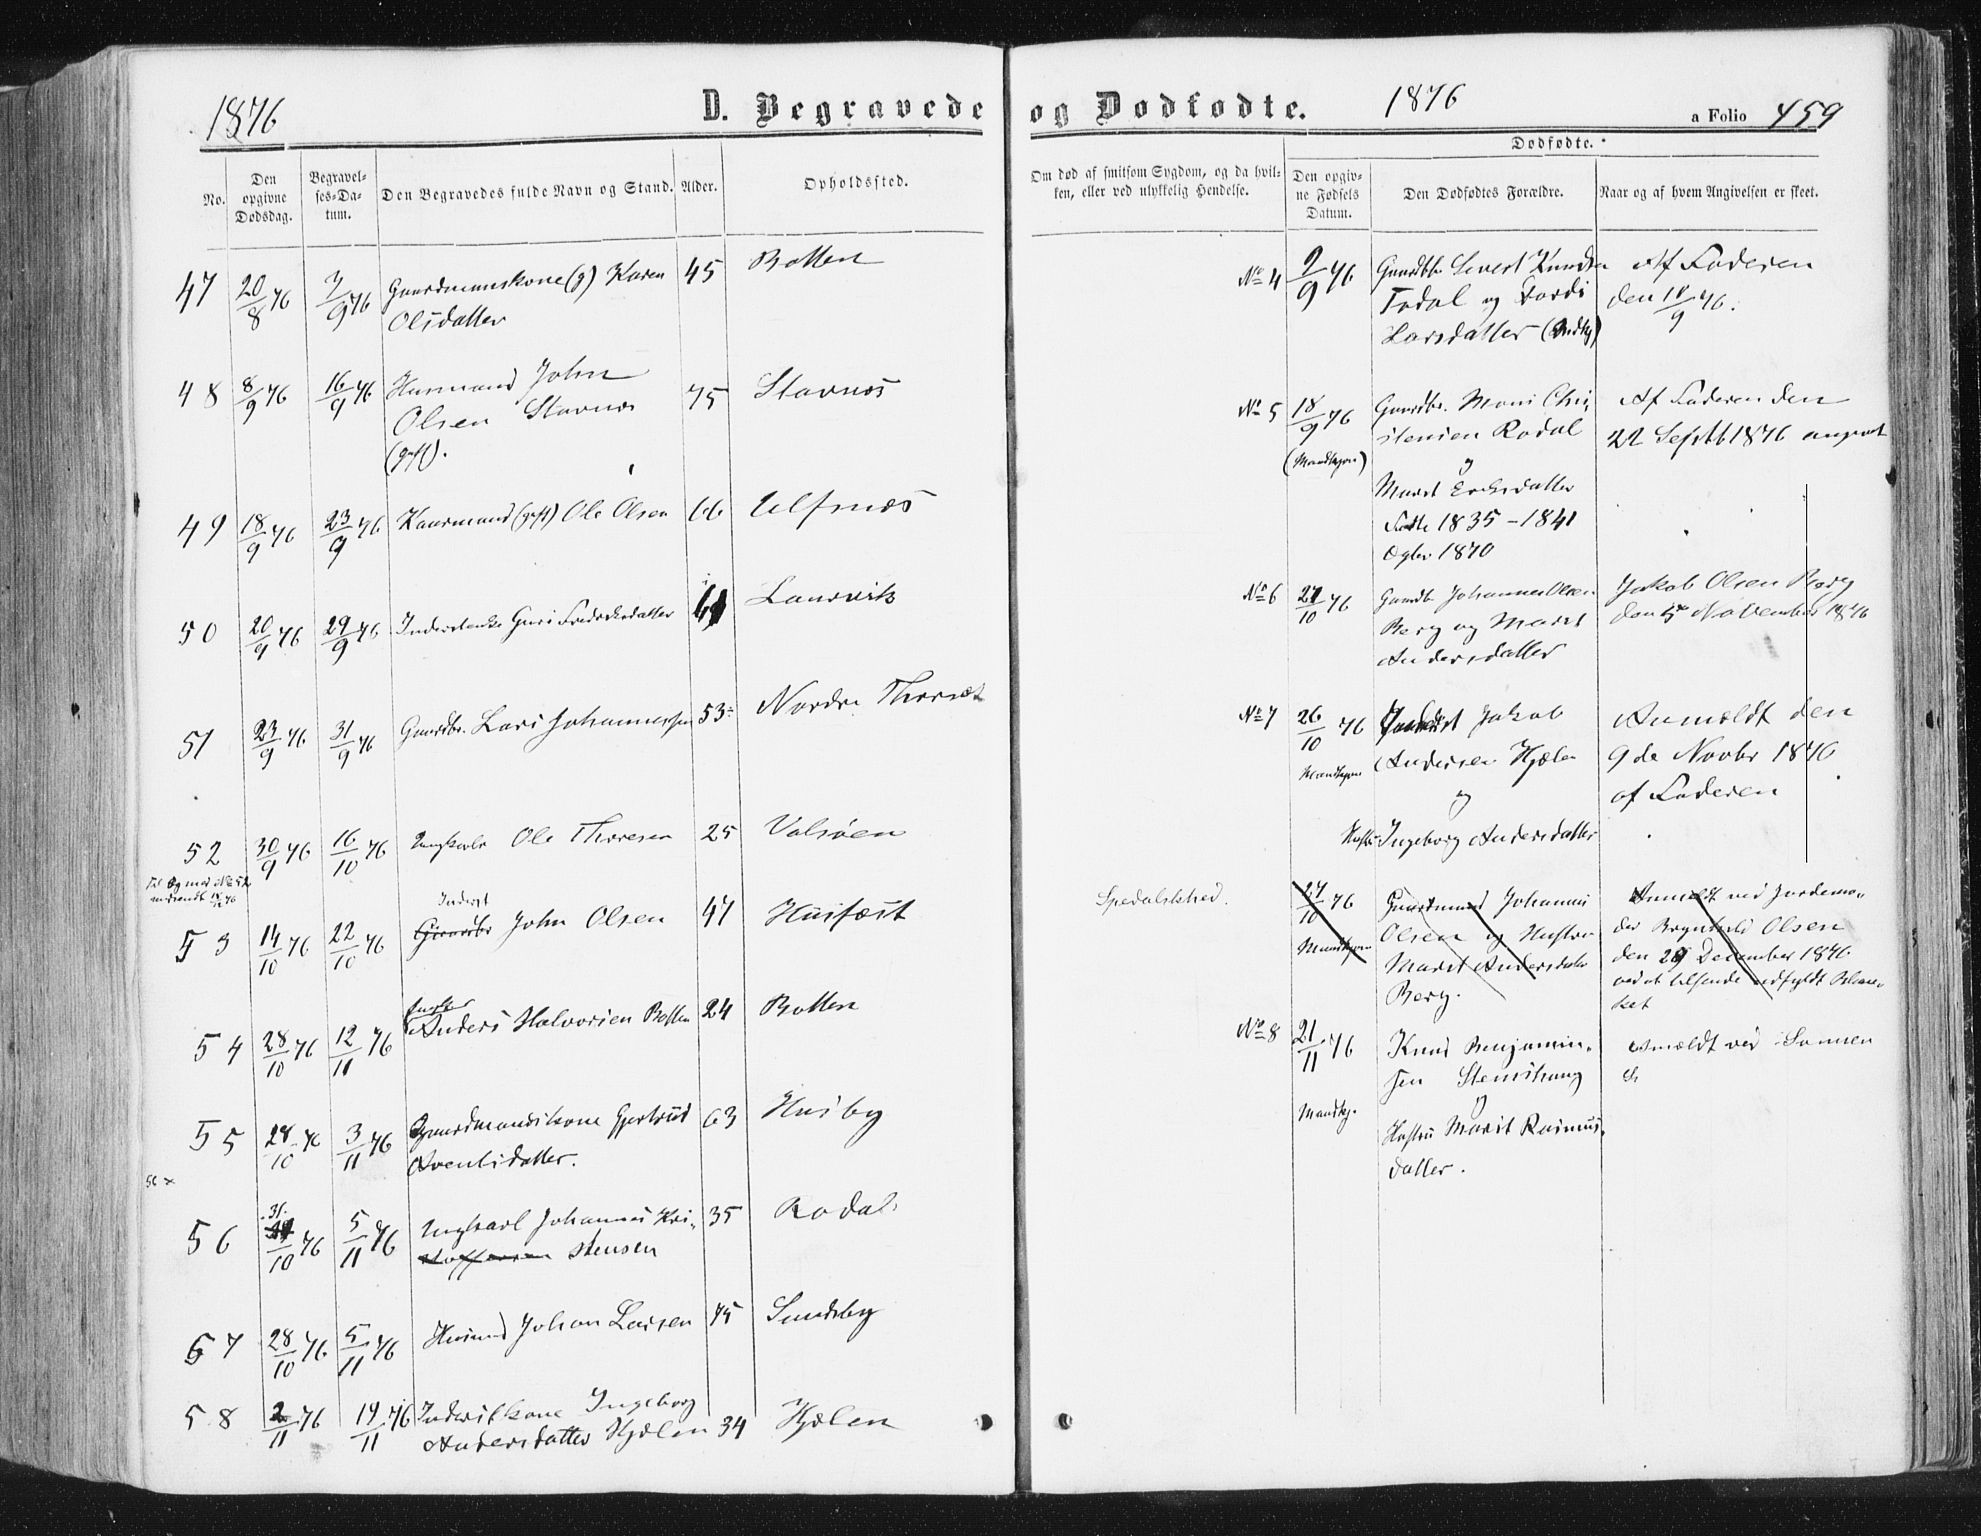 1876
D. Begravede og Dødfødte.
1876
a Folio 459
No.
Den opgivne Dødsdag.
Begravelses-Datum.
Den Begravedes fulde Navn og Stand.
Alder.
Opholdssted.
Om død af smitsom Sygdom, og da hvilken, eller ved ulykkelig Hendelse.
Dødfødte.
Den opgivne Fødsels Datum.
Den Dødfødtes Forældre.
Naar og af hvem Angivelsen er skeet.
47 20/8 76 7/9 76 Gaardmandskone (g) Karen 45 Botten
Olsdatter
48 8/9 76 16/9 76 Husmand John 75 Stavnes
Olsen Stavnes
(gift).
49 18/9 76 23/9 76 Kaarmand (gift) Ole Olsen 66 Ulfsnæs
50 20/9 76 29/9 76 Inderstenke Guri Fredriksdatter 61 Langvik
51 23/9 76 31/9 76 Gaardbr. Lars Johannessen 53 Nordre Thorset
52 30/9 76 16/10 76 Ungkarl Ole Thoresen 25 Valsøen
Inderst
53 14/10 76 22/10 76 Gaardbr John Olsen 47 Husfæst
Spedalskhed.
54 28/10 76 12/11 76 Anders Halvorsen Botten 24 Botten
55 28/10 76 3/11 76 Gaardmandskone Gjertrud 63 Husby
Arentsdatter.
56 31/10 76 5/11 76 Ungkarl Johannes Kri- 35 Rodal
stoffersen stensen
57 28/10 76 5/11 76 Husmd Johan Larsen 45 Sundsby
58 2/11 76 19/11 76 Inderstkone Ingeborg
Andersdatter Hjælen 34 Hjelen
No 4 9/9 76 Gaardbr Sivert Knudsen
Fodal og Jordi
Larsdatter
Af Faderen
den 18/9 76.
No 5 18/9 76 Gaardbr. Mons Chri-
stensen Rodal
(Mandkjøn)
og
Marit Eriksdatter
Fødte 1835 - 1841
Ægtev 1870
Af Faderen den
22 Septb 1876
No 6 27/10 76 Gaardb Johannes Olsen
Berg og Marit
Andersdatter
Jakob Olsen Berg
den 5te November 1876
No 7 26/10 76 Jakob
Mandkjøn Andersen Hjælen
og
Hustru Ingeborg Andersdatter
Anmeldt den
9de Novbr 1876
af Faderen
27/10 76 Gaardmand Johannes
Mandkjøn Olsen og Hustru
Marit Andersdatter
Berg.
Anmeldt ved Jordemo-
der Olsen
den 29 December 1876
ved at tilsende udfyldt Blan-
ket
No 8 21/11 76 Knud Benjamin-
sen Stenshaug
Mandkj. og
Hustru Marit Rasmus-
datter.
Anmeldt ved